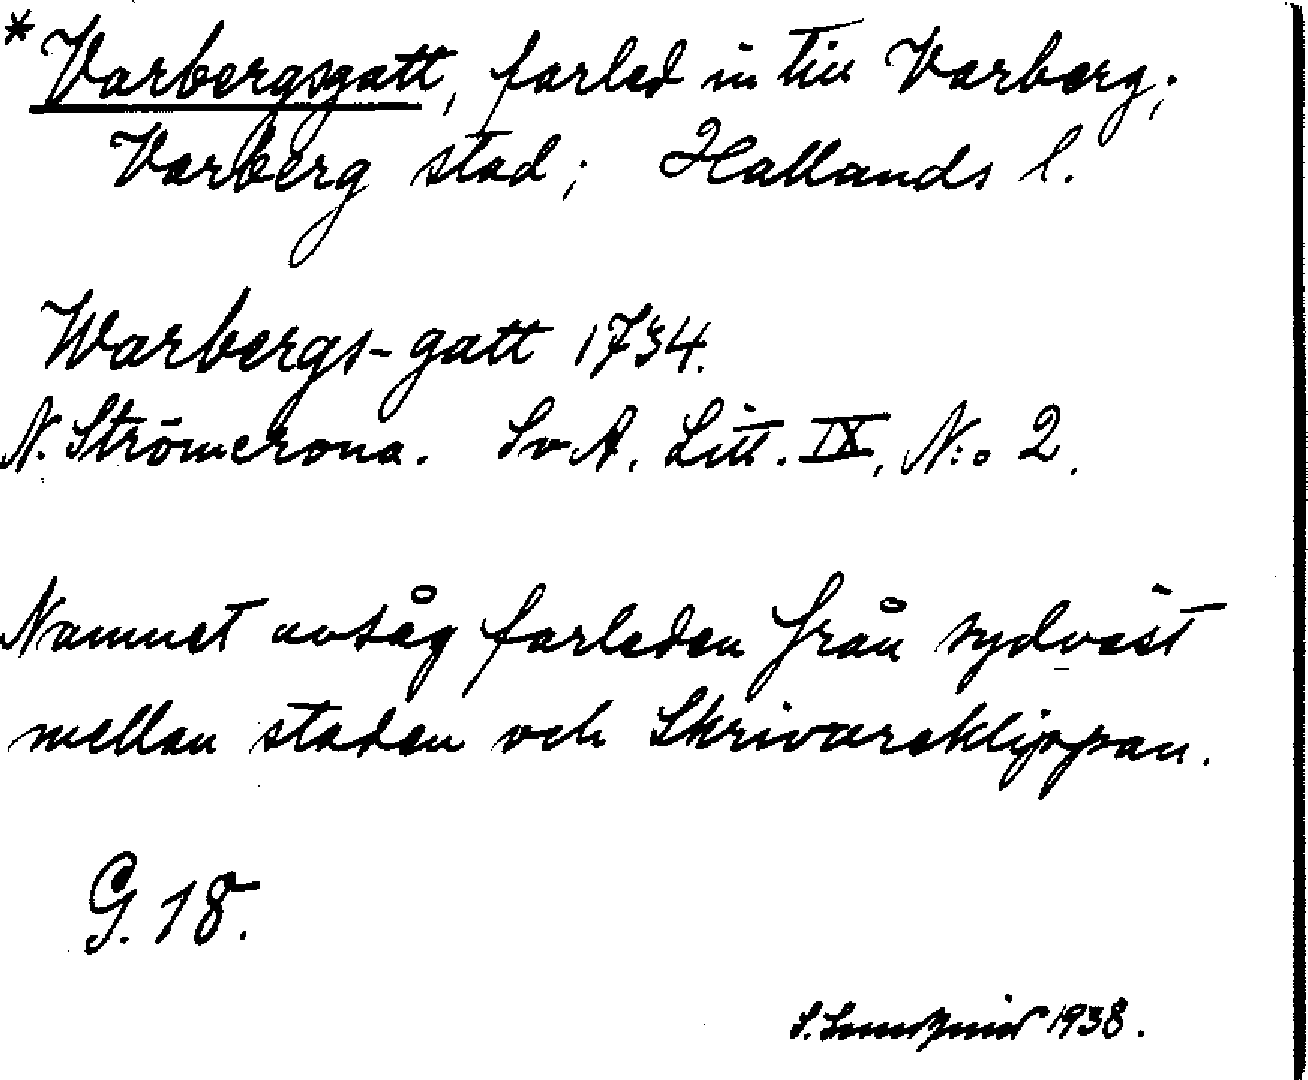 *Varbergsgatt, farled in till Varberg;
Varberg stad; Hallands l.
Warbergs-gatt 1734.
N. Strömcrona. Sv A. Litt. IX, N:o 2.
Namnet avsåg farleden från sydväst
mellan staden och Skrivareklippan.
G. 18.
S. Lundqvist 1938.